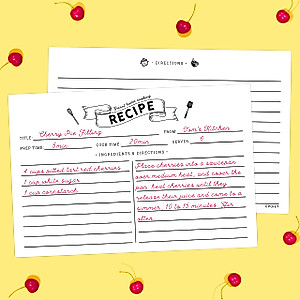 · DIRECTIONS ·
Great home cooking
RECIPE
TITLE Cherry Pie Filling FROM Tom's Kitchen
PREP TIME 5min COOK TIME 20min SERVES 5
· INGREDIENTS & DIRECTIONS ·
4 cups pitted tart red cherries
1 cup white sugar
1 cup cornstarch
Place cherries into a saucepan
over medium heat, and cover the
pan. heat cherries until they
release their juice and come to a
simmer, 10 to 15 minutes. Stir
often.